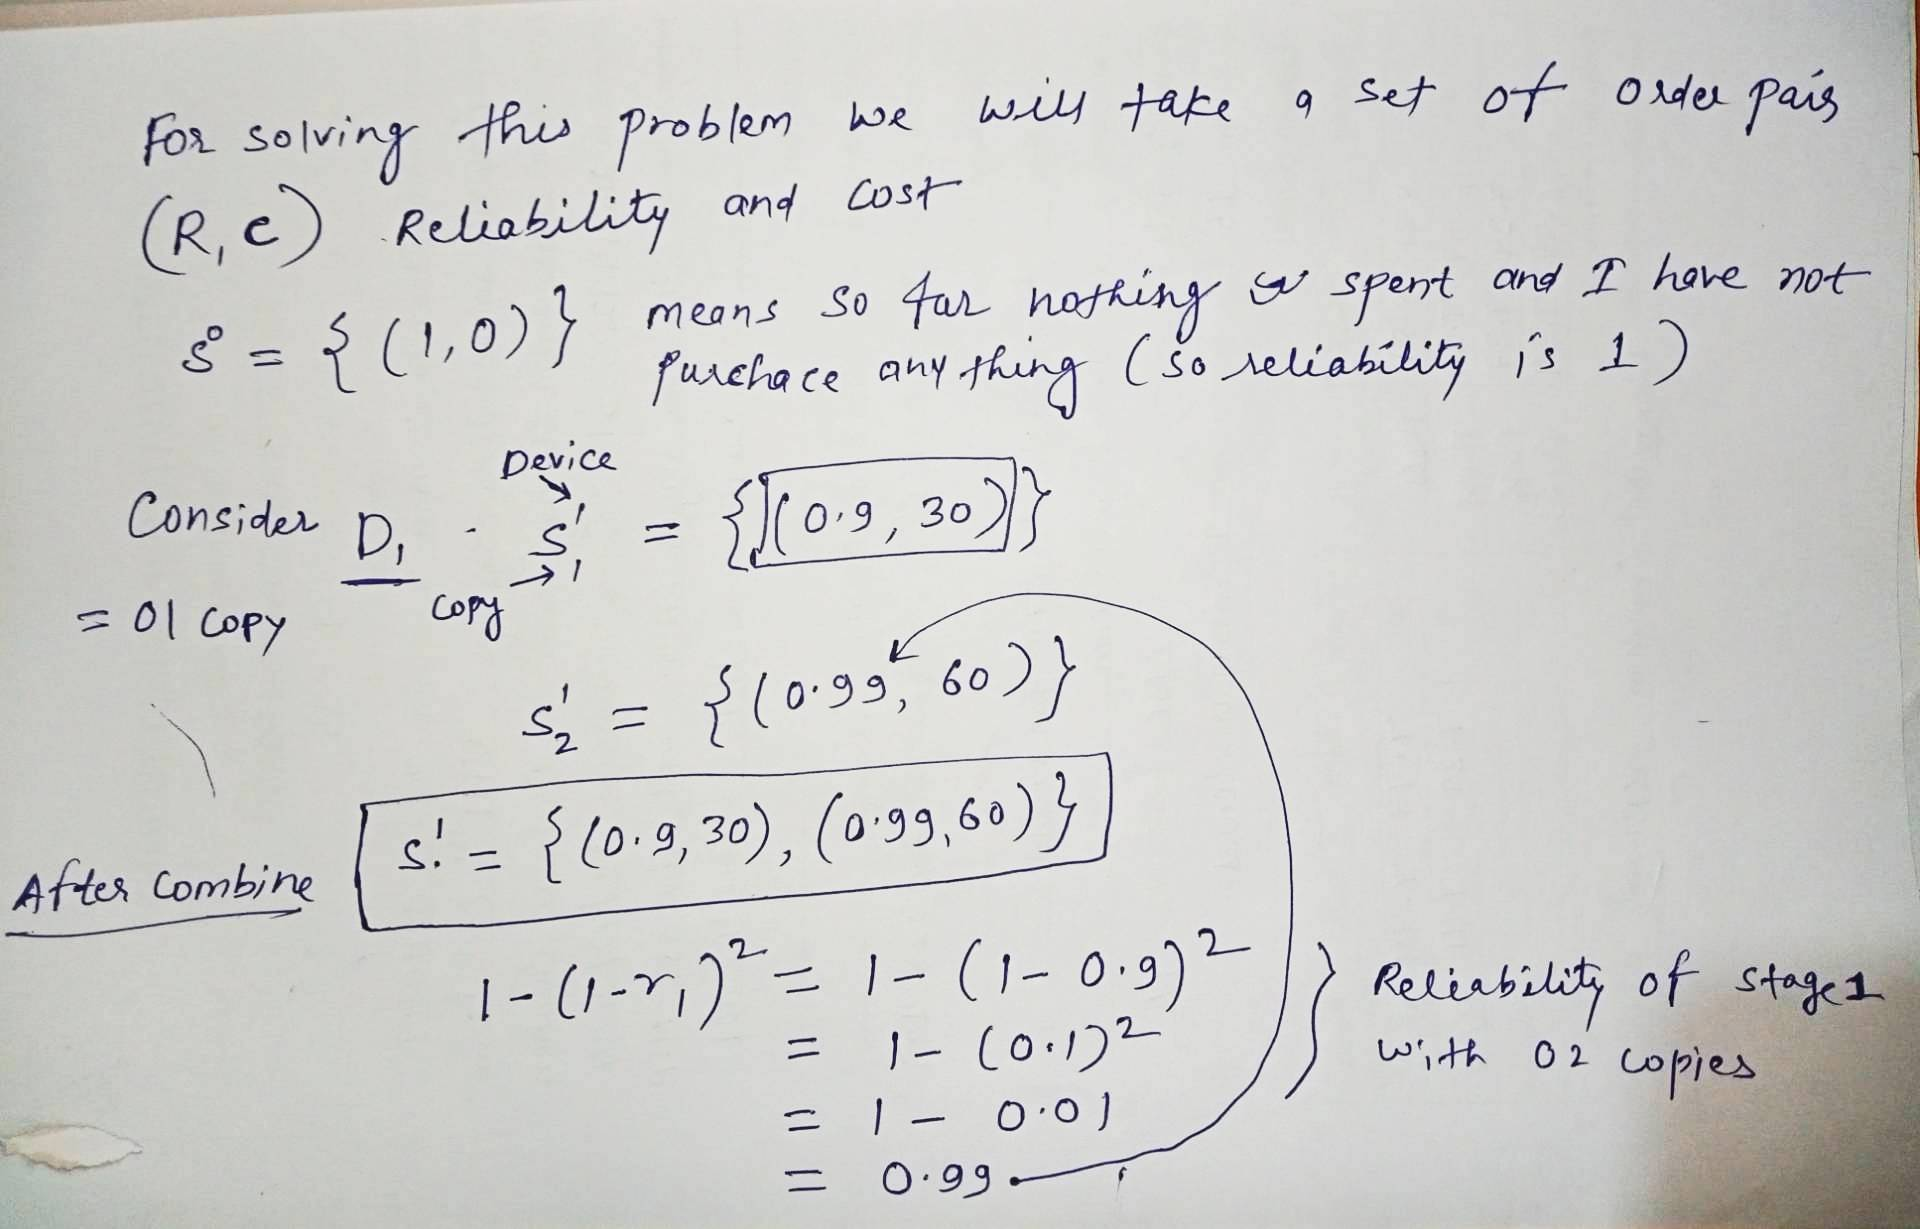 For solving this problem we will take a set of order pairs
(R, C) Reliability and cost
S⁰ = { (1,0) } means so far nothing is spent and I have not
purchace any thing (so reliability is 1)
Device
Consider D₁ . S¹₁ = {(0.9, 30)}
= 01 copy
copy
S¹₂ = {(0.99, 60)}
After combine S¹ = {(0.9, 30), (0.99, 60)}
1-(1-r₁)² = 1-(1-0.9)²
= 1-(0.1)²
= 1-0.01
= 0.99
Reliability of stage 1
with 02 copies